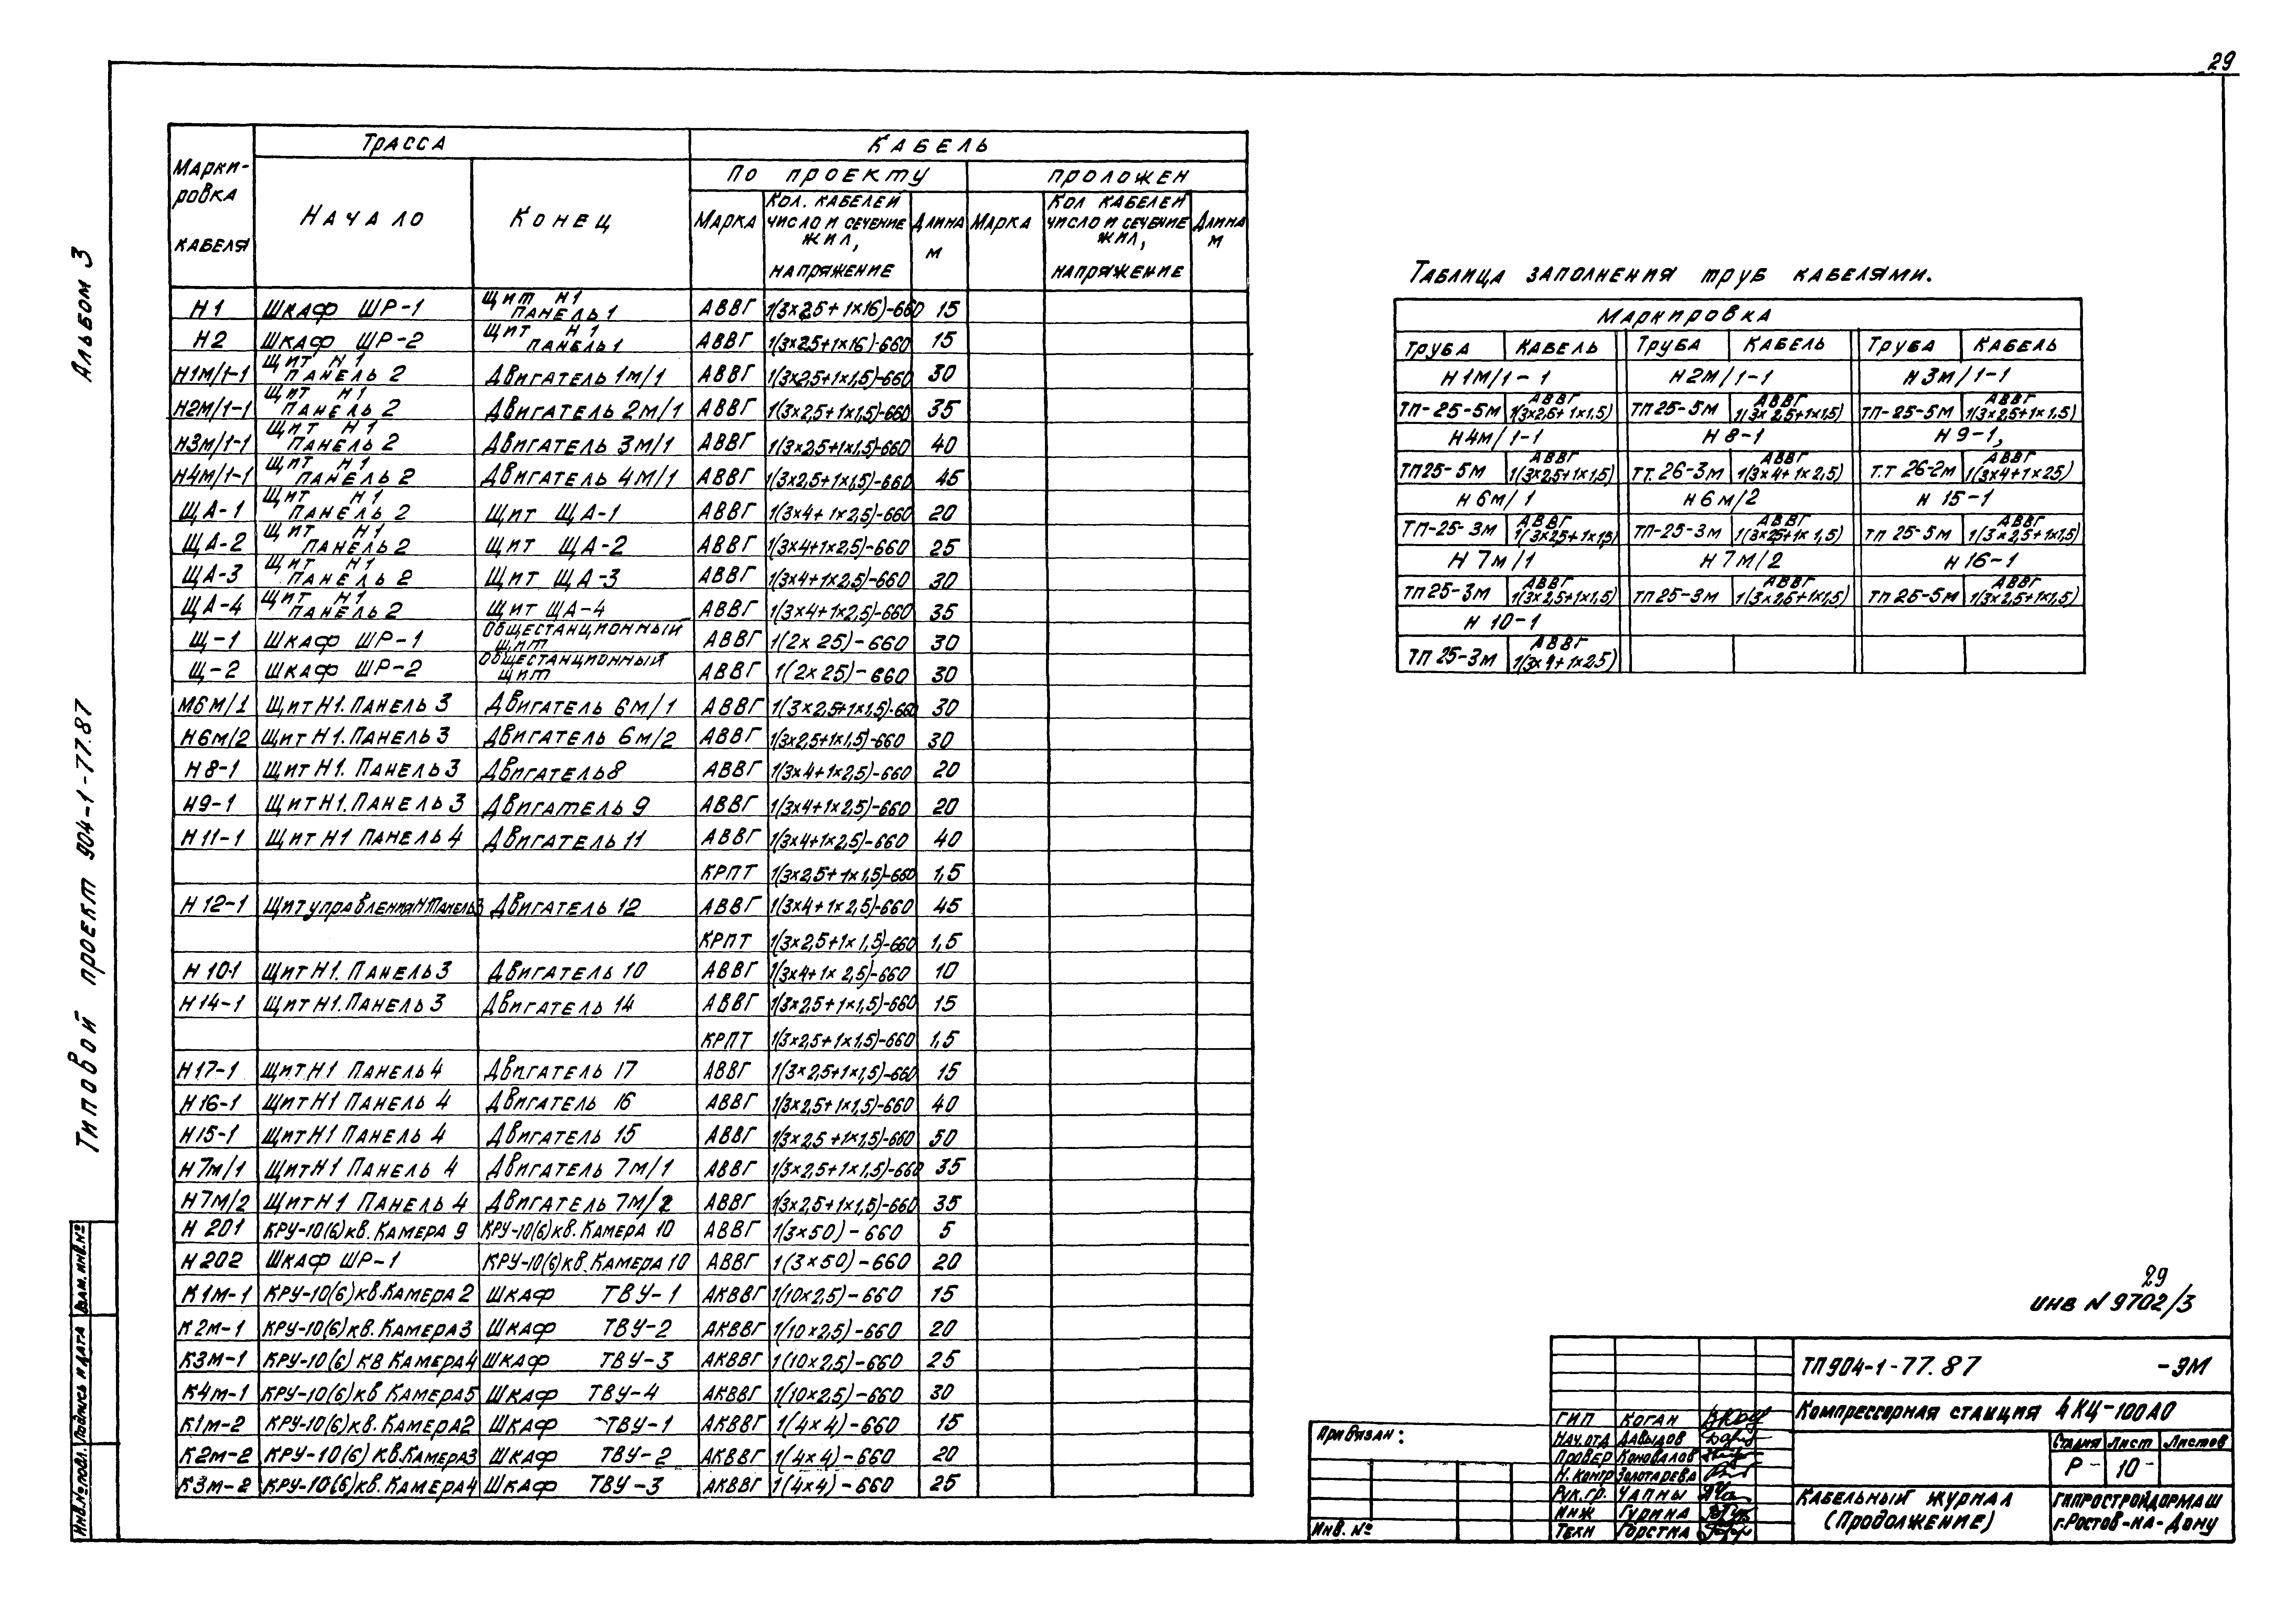 29
Альбом 3
Типовой проект 904-1-77.87
Взам. инв. №
Подпись и дата
Инв. № подл.
Марки-ровка кабеля | Трасса | Кабель
Начало | Конец | По проекту | проложен
Марка | Кол. кабелей число и сечение жил, напряжение | Длина м | Марка | Кол кабелей число и сечение жил, напряжение | Длина м
Н1 | Шкаф ШР-1 | Щит Н1 панель 1 | АВВГ | 1(3×25+1×16)-660 | 15
Н2 | Шкаф ШР-2 | Щит Н1 панель 1 | АВВГ | 1(3×25+1×16)-660 | 15
Н1м/1-1 | Щит Н1 панель 2 | Двигатель 1м/1 | АВВГ | 1(3×2,5+1×1,5)-660 | 30
Н2м/1-1 | Щит Н1 панель 2 | Двигатель 2м/1 | АВВГ | 1(3×2,5+1×1,5)-660 | 35
Н3м/1-1 | Щит Н1 панель 2 | Двигатель 3м/1 | АВВГ | 1(3×2,5+1×1,5)-660 | 40
Н4м/1-1 | Щит Н1 панель 2 | Двигатель 4м/1 | АВВГ | 1(3×2,5+1×1,5)-660 | 45
ЩА-1 | Щит Н1 панель 2 | Щит ЩА-1 | АВВГ | 1(3×4+1×2,5)-660 | 20
ЩА-2 | Щит Н1 панель 2 | Щит ЩА-2 | АВВГ | 1(3×4+1×2,5)-660 | 25
ЩА-3 | Щит Н1 панель 2 | Щит ЩА-3 | АВВГ | 1(3×4+1×2,5)-660 | 30
ЩА-4 | Щит Н1 панель 2 | Щит ЩА-4 | АВВГ | 1(3×4+1×2,5)-660 | 35
Щ-1 | Шкаф ШР-1 | Общестанционный щит | АВВГ | 1(2×25)-660 | 30
Щ-2 | Шкаф ШР-2 | Общестанционный щит | АВВГ | 1(2×25)-660 | 30
М6м/1 | Щит Н1. Панель 3 | Двигатель 6м/1 | АВВГ | 1(3×2,5+1×1,5)-660 | 30
Н6м/2 | Щит Н1. Панель 3 | Двигатель 6м/2 | АВВГ | 1(3×2,5+1×1,5)-660 | 30
Н8-1 | Щит Н1. Панель 3 | Двигатель 8 | АВВГ | 1(3×4+1×2,5)-660 | 20
Н9-1 | Щит Н1. Панель 3 | Двигатель 9 | АВВГ | 1(3×4+1×2,5)-660 | 20
Н11-1 | Щит Н1 Панель 4 | Двигатель 11 | АВВГ | 1(3×4+1×2,5)-660 | 40
КРПТ | 1(3×2,5+1×1,5)-660 | 1,5
Н12-1 | Щит управления Н1 Панель 3 | Двигатель 12 | АВВГ | 1(3×4+1×2,5)-660 | 45
КРПТ | 1(3×2,5+1×1,5)-660 | 1,5
Н10-1 | Щит Н1. Панель 3 | Двигатель 10 | АВВГ | 1(3×4+1×2,5)-660 | 10
Н14-1 | Щит Н1. Панель 3 | Двигатель 14 | АВВГ | 1(3×2,5+1×1,5)-660 | 15
КРПТ | 1(3×2,5+1×1,5)-660 | 1,5
Н17-1 | Щит Н1 Панель 4 | Двигатель 17 | АВВГ | 1(3×2,5+1×1,5)-660 | 15
Н16-1 | Щит Н1 Панель 4 | Двигатель 16 | АВВГ | 1(3×2,5+1×1,5)-660 | 40
Н15-1 | Щит Н1 Панель 4 | Двигатель 15 | АВВГ | 1(3×2,5+1×1,5)-660 | 50
Н7м/1 | Щит Н1 Панель 4 | Двигатель 7м/1 | АВВГ | 1(3×2,5+1×1,5)-660 | 35
Н7м/2 | Щит Н1 Панель 4 | Двигатель 7м/2 | АВВГ | 1(3×2,5+1×1,5)-660 | 35
Н 201 | КРУ-10(6)кв. Камера 9 | КРУ-10(6)кв. Камера 10 | АВВГ | 1(3×50)-660 | 5
Н202 | Шкаф ШР-1 | КРУ-10(6)кв. Камера 10 | АВВГ | 1(3×50)-660 | 20
К1м-1 | КРУ-10(6)кв. Камера 2 | Шкаф ТВУ-1 | АКВВГ | 1(10×2,5)-660 | 15
К2м-1 | КРУ-10(6)кв. Камера 3 | Шкаф ТВУ-2 | АКВВГ | 1(10×2,5)-660 | 20
К3м-1 | КРУ-10(6) кв Камера 4 | Шкаф ТВУ-3 | АКВВГ | 1(10×2,5)-660 | 25
К4м-1 | КРУ-10(6)кв Камера 5 | Шкаф ТВУ-4 | АКВВГ | 1(10×2,5)-660 | 30
К1м-2 | КРУ-10(6)кв. Камера 2 | Шкаф ТВУ-1 | АКВВГ | 1(4×4)-660 | 15
К2м-2 | КРУ-10(6) кв. Камера 3 | Шкаф ТВУ-2 | АКВВГ | 1(4×4)-660 | 20
К3м-2 | КРУ-10(6)кв. Камера 4 | Шкаф ТВУ-3 | АКВВГ | 1(4×4)-660 | 25
Таблица заполнения труб кабелями.
Маркировка
Труба | Кабель | Труба | Кабель | Труба | Кабель
Н1м/1-1 | Н2м/1-1 | Н3м/1-1
ТП-25-5м | АВВГ 1(3×2,5+1×1,5) | ТП 25-5м | АВВГ 1(3×2,5+1×1,5) | ТП-25-5м | АВВГ 1(3×2,5+1×1,5)
Н4м/1-1 | Н8-1 | Н9-1,
ТП25-5м | АВВГ 1(3×2,5+1×1,5) | ТТ. 26-3м | АВВГ 1(3×4+1×2,5) | Т.Т 26-2м | АВВГ 1(3×4+1×25)
Н6м/1 | Н6м/2 | Н 15-1
ТП-25-3м | АВВГ 1(3×2,5+1×1,5) | ТП-25-3м | АВВГ 1(3×25+1×1,5) | ТП 25-5м | АВВГ 1(3×2,5+1×1,5)
Н7м/1 | Н7м/2 | Н16-1
ТП25-3м | АВВГ 1(3×2,5+1×1,5) | ТП25-3м | АВВГ 1(3×2,5+1×1,5) | ТП 25-5м | АВВГ 1(3×2,5+1×1,5)
Н 10-1
ТП 25-3м | АВВГ 1(3×4+1×2.5)
29
инв N 9702/3
Привязан:
Инв. №
ГИП Коган
Нач. отд Давыдов
Провер Коновалов
Н. контр Золотарева
Рук. гр. Чапны
Инж Гурина
Техн
ТП904-1-77.87 -ЭМ
Компрессорная станция 4КЦ-100А0
Стадия | Лист | Листов
Р | 10
Кабельный журнал (Продолжение)
Гипростройдормаш г. Ростов-на-Дону